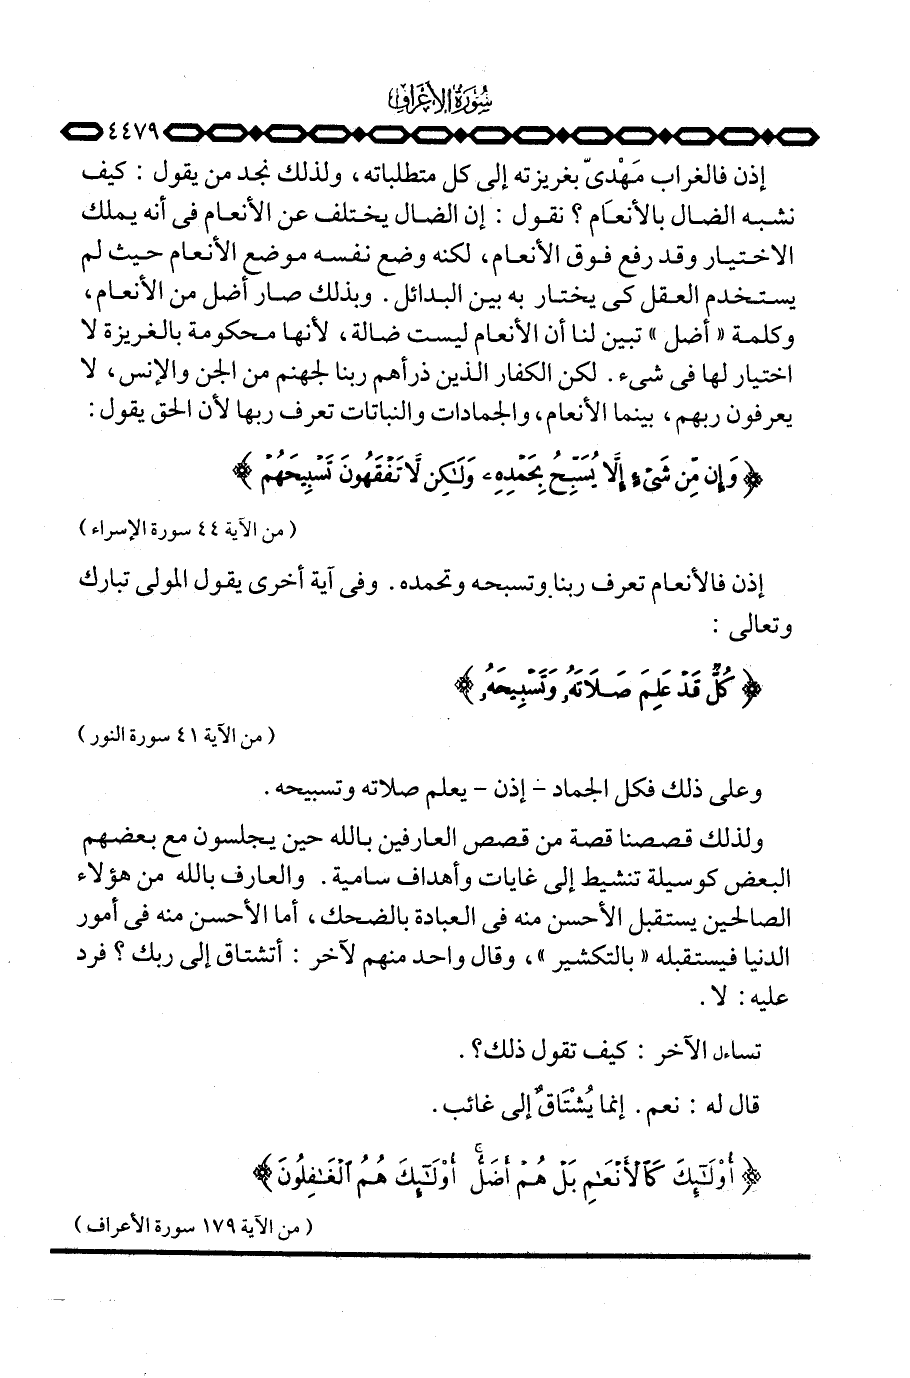 سُورَةُ الأَعْرَافِ
٤٤٧٩
إذن فالغراب مَهْدىّ بغريزته إلى كل متطلباته ، ولذلك نجد من يقول : كيف
نشبه الضال بالأنعام ؟ نقول : إن الضال يختلف عن الأنعام فى أنه يملك
الاختيار وقد رفع فوق الأنعام ، لكنه وضع نفسه موضع الأنعام حيث لم
يستخدم العقل كى يختار به بين البدائل . وبذلك صار أضل من الأنعام ،
وكلمة « أضل » تبين لنا أن الأنعام ليست ضالة ، لأنها محكومة بالغريزة لا
اختيار لها فى شىء . لكن الكفار الذين ذرأهم ربنا لجهنم من الجن والإنس ، لا
يعرفون ربهم ، بينما الأنعام ، والجمادات والنباتات تعرف ربها لأن الحق يقول :
﴿ وَإِن مِّن شَىْءٍ إِلَّا يُسَبِّحُ بِحَمْدِهِۦ وَلَٰكِن لَّا تَفْقَهُونَ تَسْبِيحَهُمْ ﴾
( من الآية ٤٤ سورة الإسراء )
إذن فالأنعام تعرف ربنا وتسبحه وتحمده . وفى آية أخرى يقول المولى تبارك
وتعالى :
﴿ كُلٌّ قَدْ عَلِمَ صَلَاتَهُۥ وَتَسْبِيحَهُۥ ﴾
( من الآية ٤١ سورة النور )
وعلى ذلك فكل الجماد - إذن - يعلم صلاته وتسبيحه .
ولذلك قصصنا قصة من قصص العارفين بالله حين يجلسون مع بعضهم
البعض كوسيلة تنشيط إلى غايات وأهداف سامية . والعارف بالله من هؤلاء
الصالحين يستقبل الأحسن منه فى العبادة بالضحك ، أما الأحسن منه فى أمور
الدنيا فيستقبله « بالتكشير » ، وقال واحد منهم لآخر : أتشتاق إلى ربك ؟ فرد
عليه : لا .
تساءل الآخر : كيف تقول ذلك ؟ .
قال له : نعم . إنما يُشْتَاقٌ إلى غائب .
﴿ أُوْلَٰٓئِكَ كَٱلْأَنْعَٰمِ بَلْ هُمْ أَضَلُّ ۚ أُوْلَٰٓئِكَ هُمُ ٱلْغَٰفِلُونَ ﴾
( من الآية ١٧٩ سورة الأعراف )